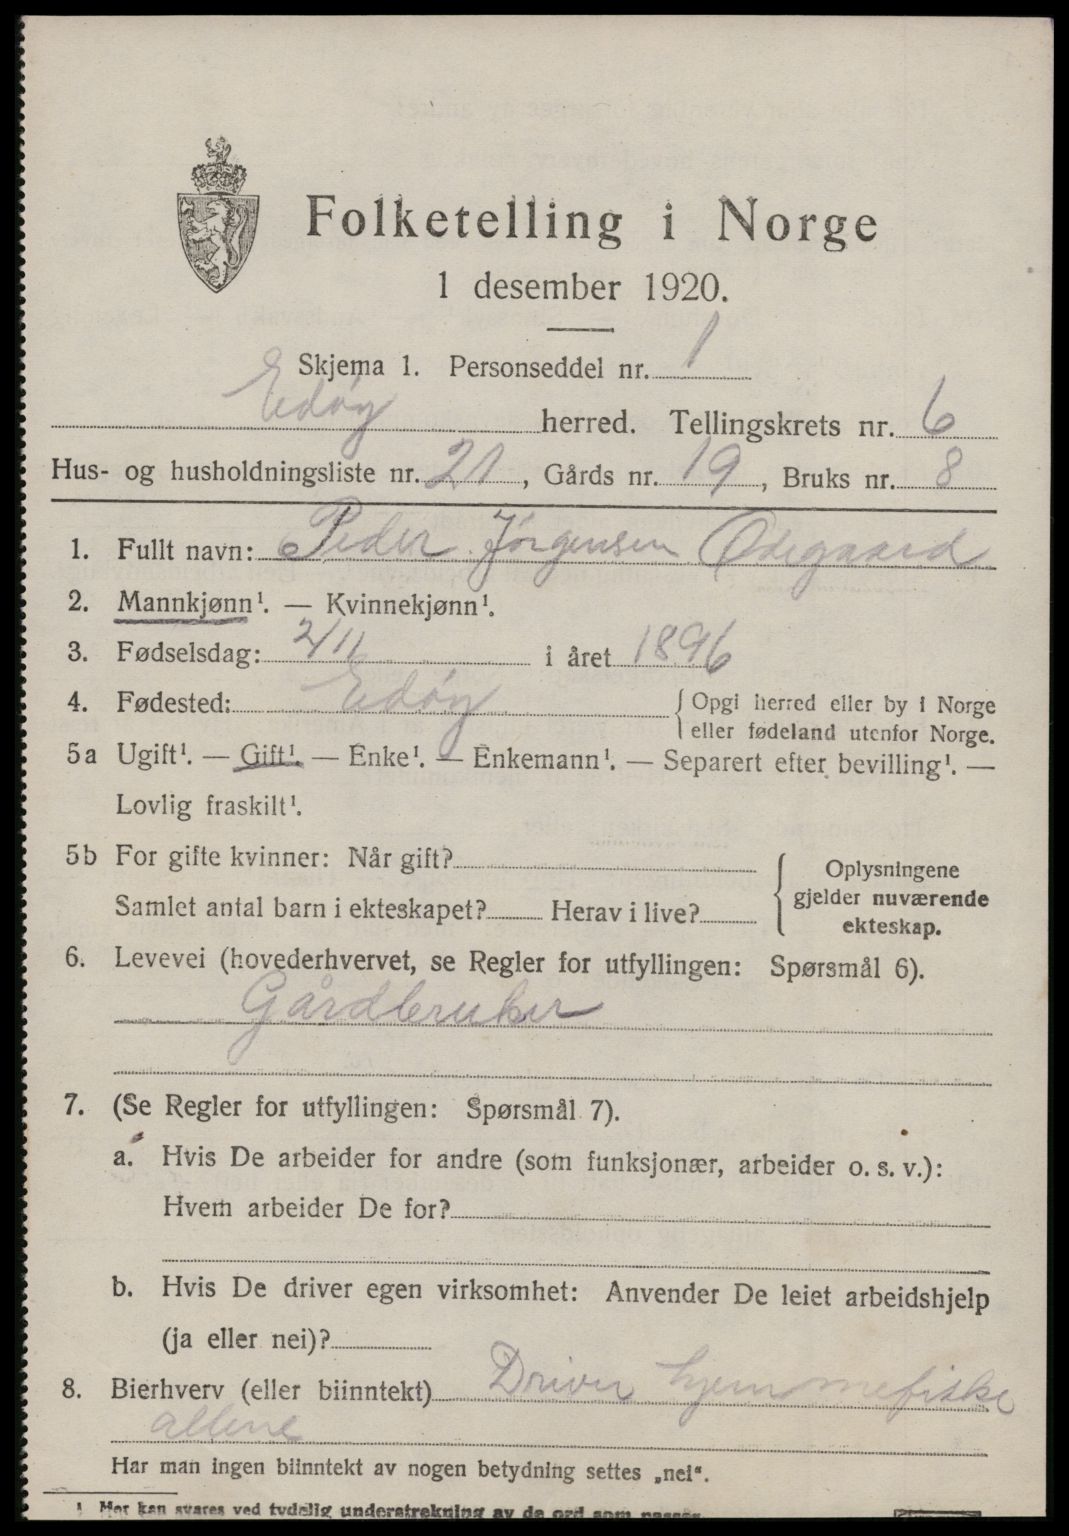 Folketelling i Norge
1 desember 1920.
Skjema 1. Personseddel nr. 1
Edøy herred. Tellingskrets nr. 6
Hus- og husholdningsliste nr. 21, Gårds nr. 19, Bruks nr. 8
1. Fullt navn: Peder Jørgensen Ødegaard
2. Mannkjønn¹. — Kvinnekjønn¹.
3. Fødselsdag: 2/11 i året 1896
4. Fødested: Edøy { Opgi herred eller by i Norge
eller fødeland utenfor Norge.
5a Ugift¹. — Gift¹. — Enke¹. — Enkemann¹. — Separert efter bevilling¹. —
Lovlig fraskilt¹.
5b For gifte kvinner: Når gift?
Samlet antal barn i ekteskapet? Herav i live?
{ Oplysningene
gjelder nuværende
ekteskap.
6. Levevei (hovederhvervet, se Regler for utfyllingen: Spørsmål 6).
Gårdbruker
7. (Se Regler for utfyllingen: Spørsmål 7).
a. Hvis De arbeider for andre (som funksjonær, arbeider o. s. v.):
Hvem arbeider De for?
b. Hvis De driver egen virksomhet: Anvender De leiet arbeidshjelp
(ja eller nei)?
8. Bierhverv (eller biinntekt) Driver hjemmefiske
allene
Har man ingen biinntekt av nogen betydning settes „nei“.
¹ Her kan svares ved tydelig understrekning av de ord som passer.